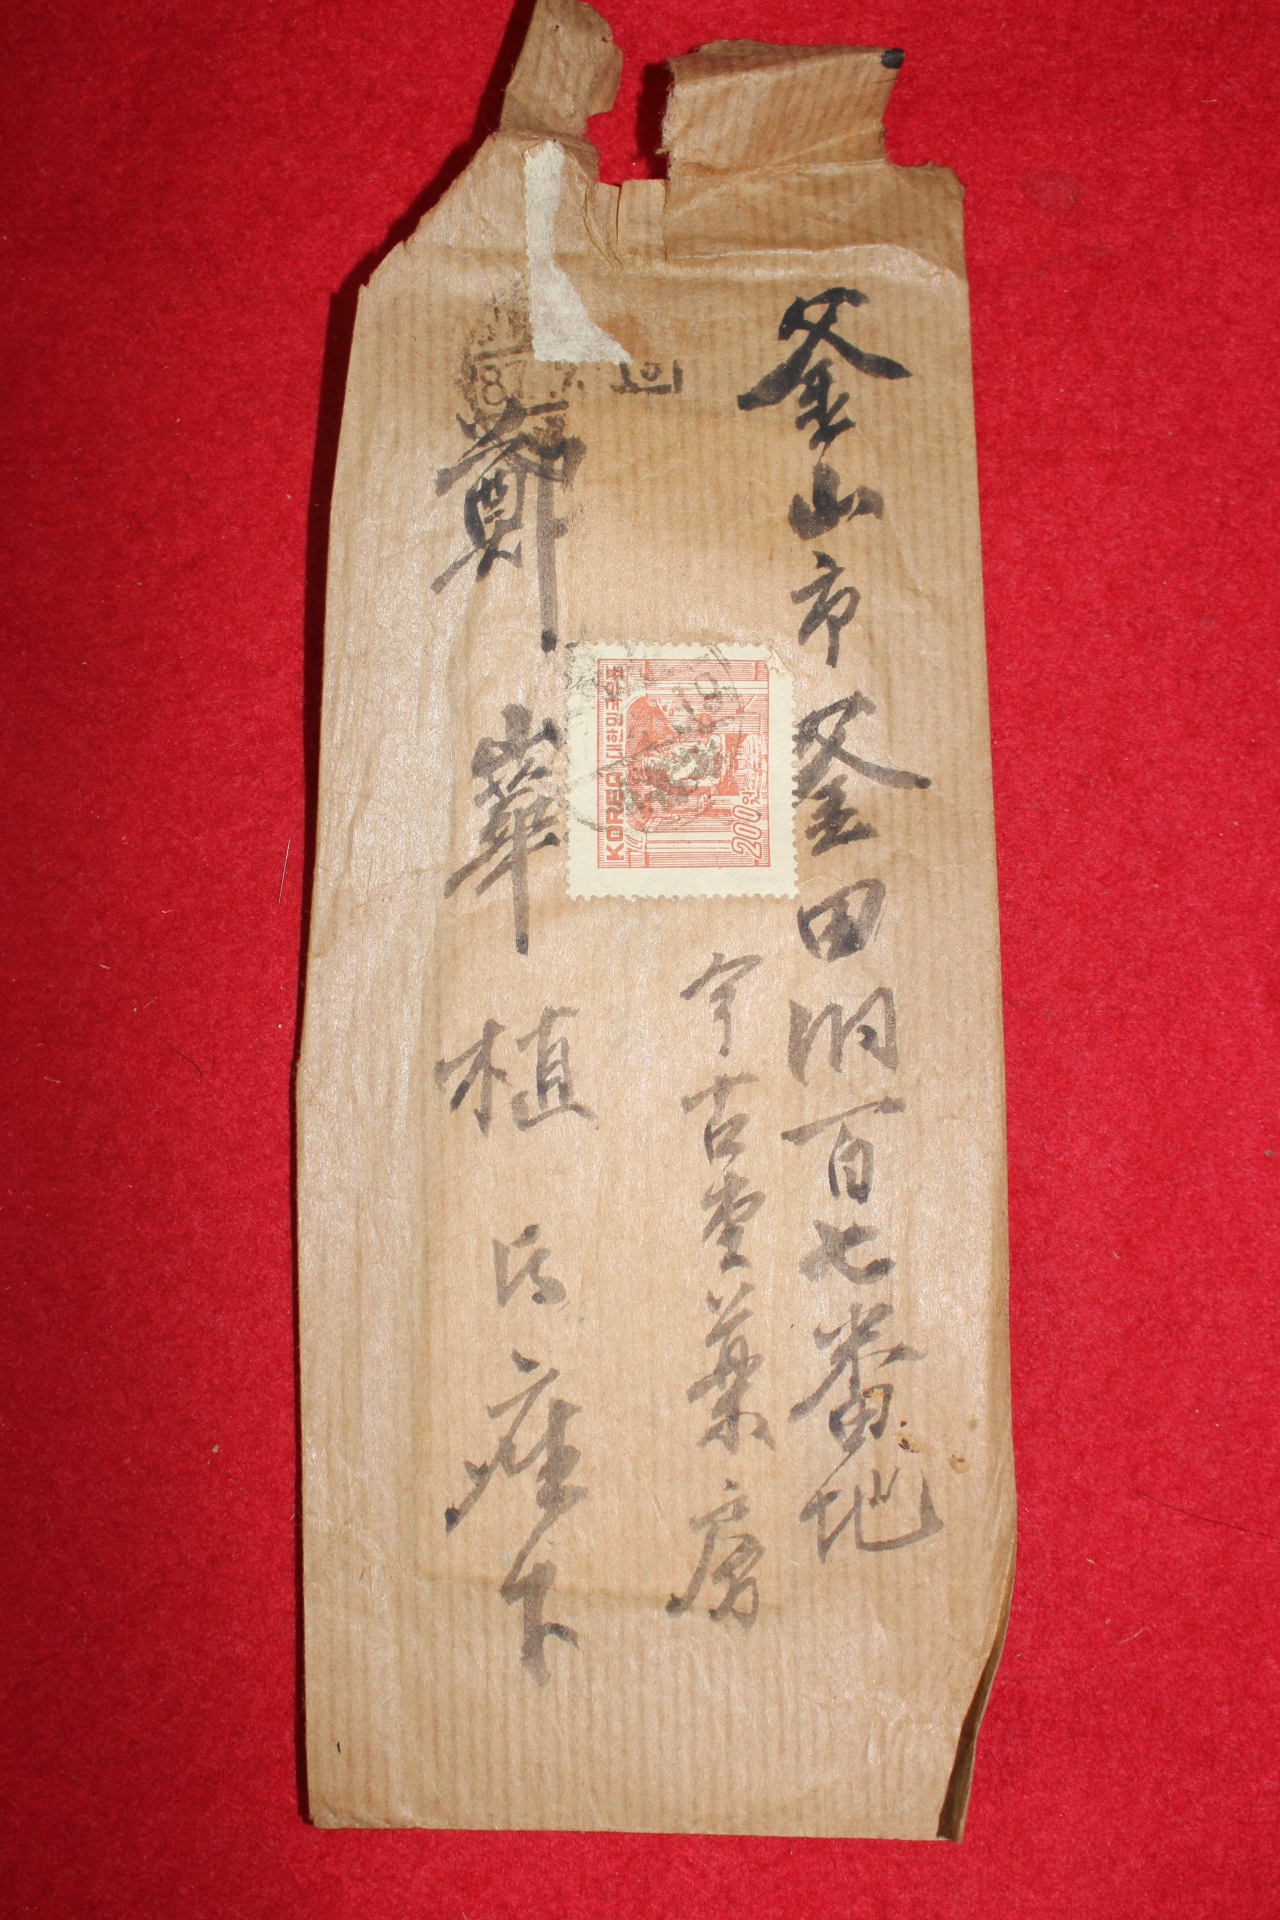 釜山市釜田洞百七番地
今古堂薬房
鄭崋植氏座下
대한민국우표
KOREA
200원
87.7.